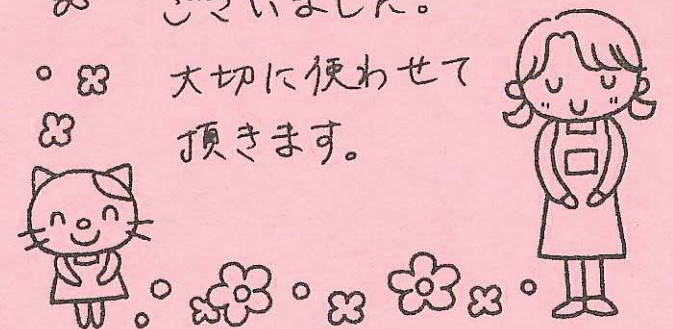 ございました。
大切に使わせて
頂きます。